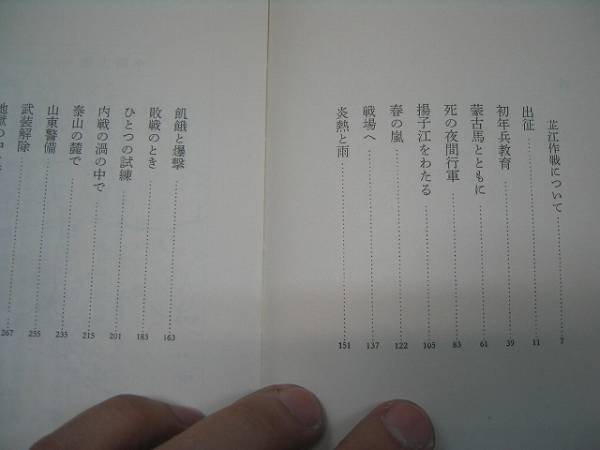 芷江作戦について……7
出征……11
初年兵教育……39
蒙古馬とともに……61
死の夜間行軍……83
揚子江をわたる……105
春の嵐……122
戦場へ……137
炎熱と雨……151
飢餓と爆撃……163
敗戦のとき……183
ひとつの試練……201
内戦の渦の中で……215
泰山の麓で……235
山東警備……255
武装解除……267